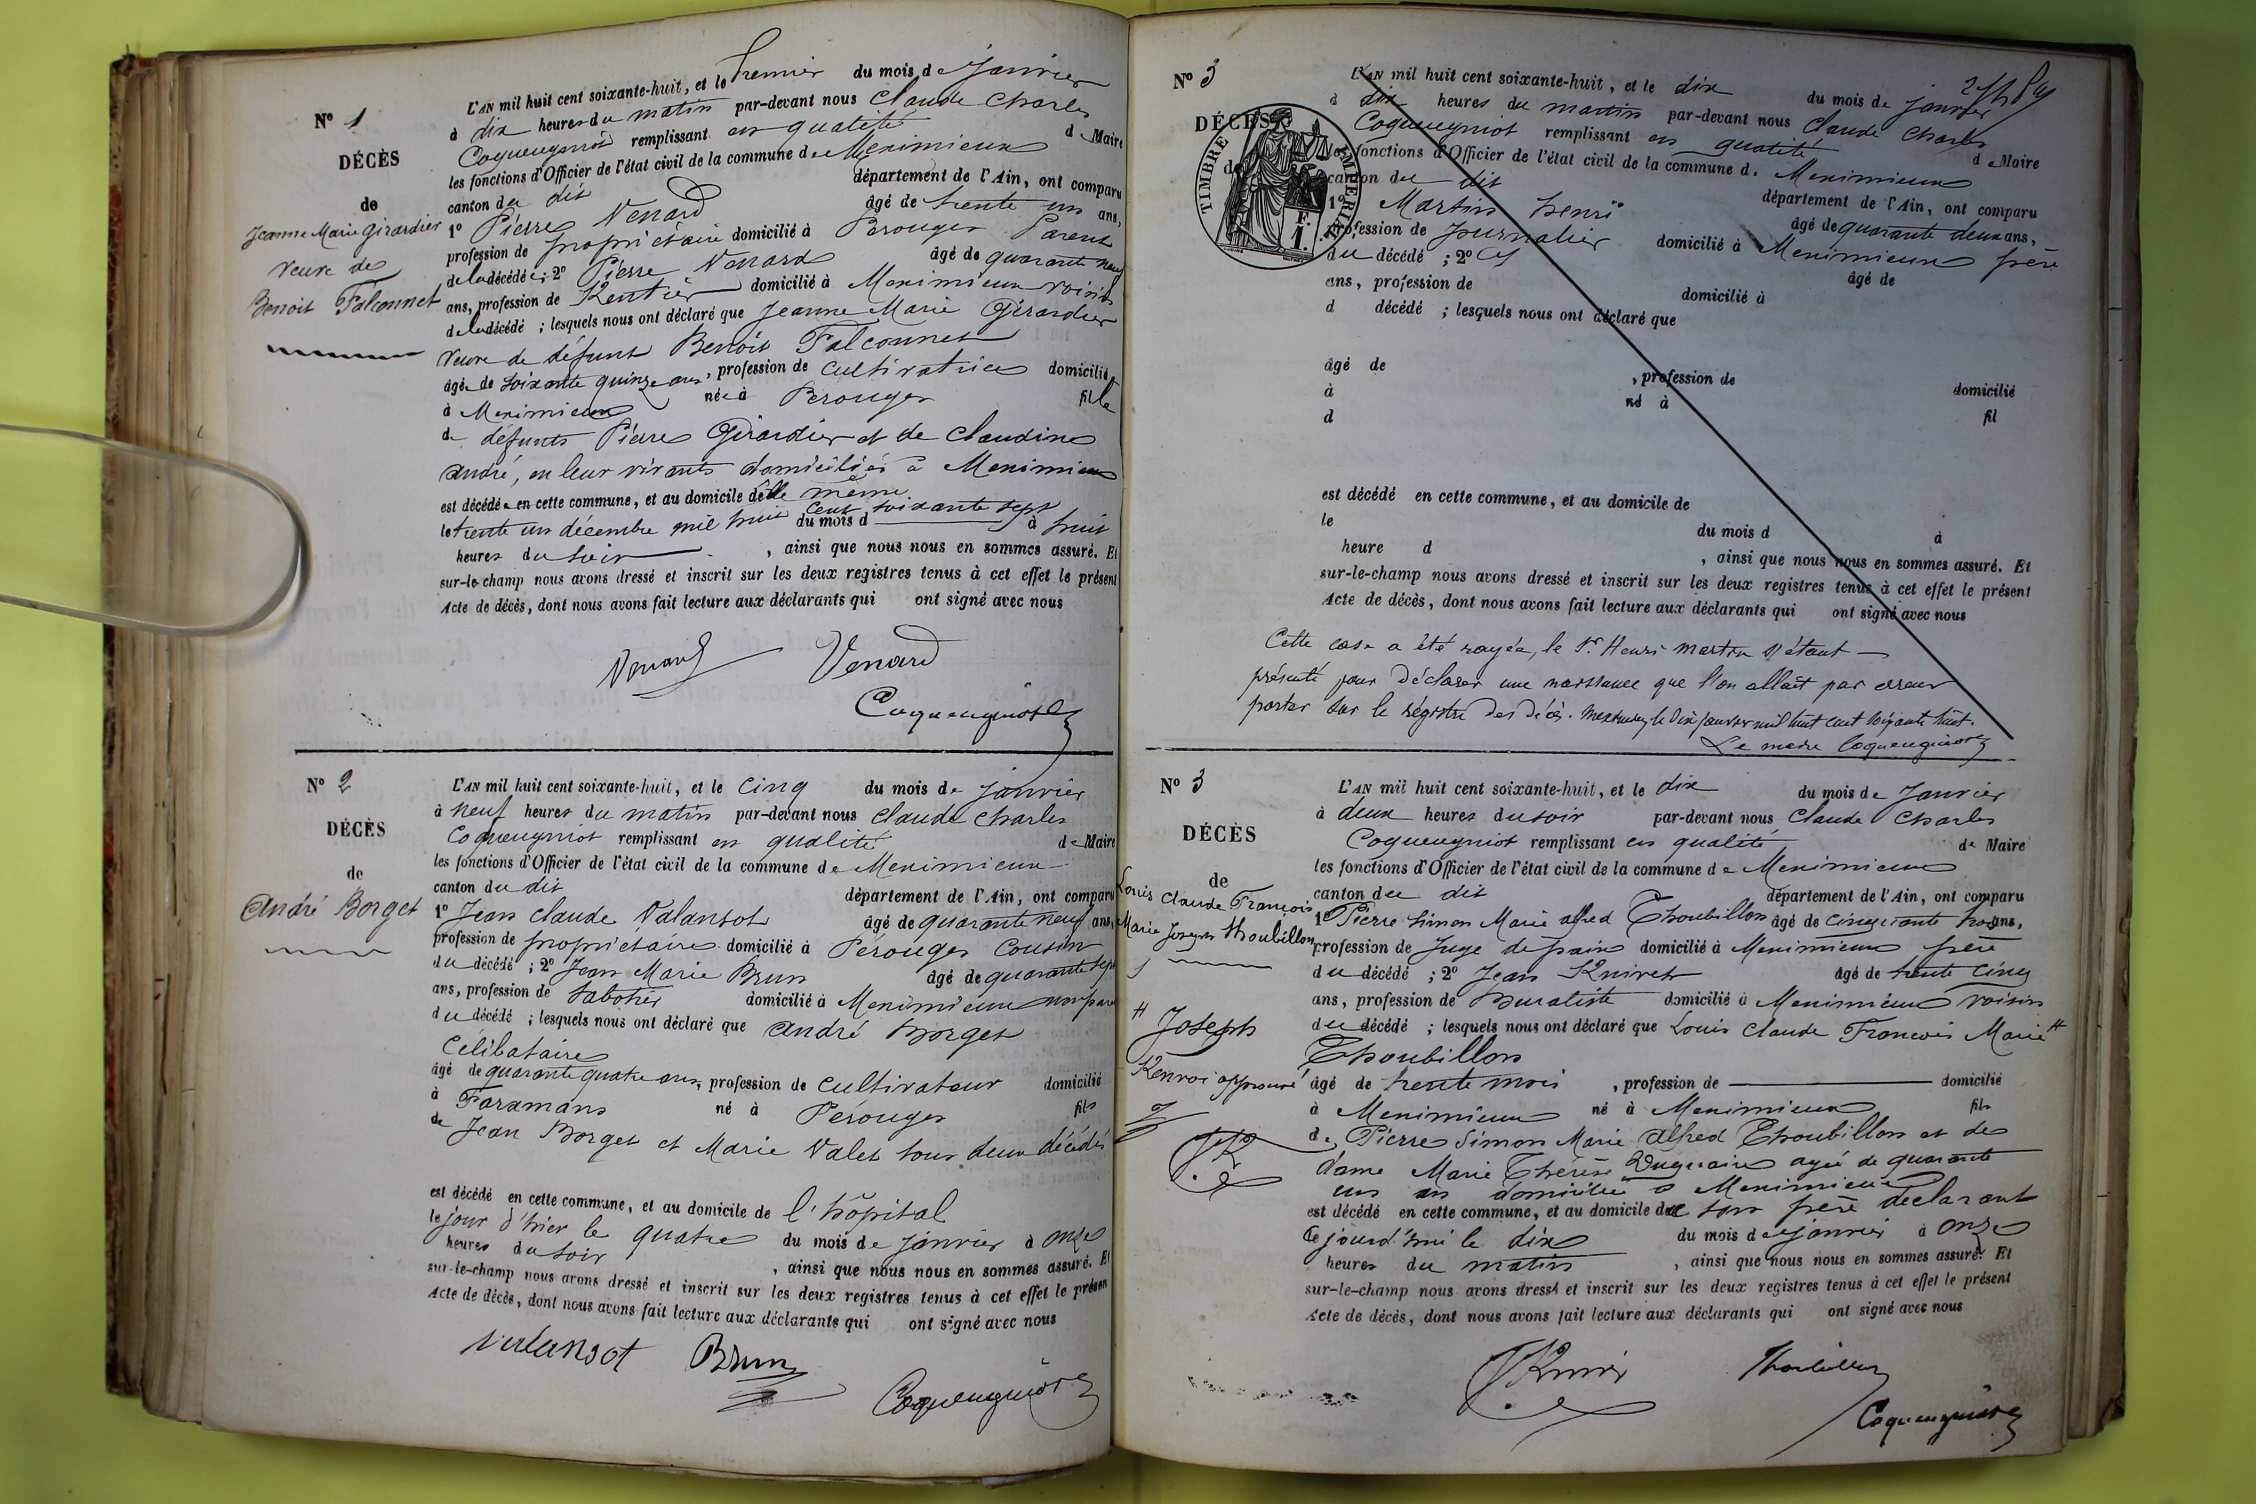 N° 1
DÉCÈS
de
Jeanne Marie Girardier
veuve de
Benoit Falconnet
L'AN mil huit cent soixante-huit, et le premier du mois de janvier
à dix heures du matin par-devant nous Claude Charles
Coqueugniot remplissant en qualité de Maire
les fonctions d'Officier de l'état civil de la commune de Meximieux
canton du dit département de l'Ain, ont comparu
1° Pierre Venard âgé de trente un ans,
profession de propriétaire domicilié à Perouges Parent
de la décédée ; 2° Pierre Venard âgé de quarante neuf
ans, profession de Rentier domicilié à Meximieux voisin
de la décédé ; lesquels nous ont déclaré que Jeanne Marie Girardier
veuve de défunt Benoit Falconnet
âgée de soixante quinze ans, profession de cultivatrice domiciliée
à Meximieux née à Perouges fille
de défunts Pierre Girardier et de Claudine
André, en leur vivants domiciliés à Meximieux
est décédée en cette commune, et au domicile d'elle même
le trente un décembre mil huit cent soixante sept du mois d à huit
heures du soir , ainsi que nous nous en sommes assuré. Et
sur-le-champ nous avons dressé et inscrit sur les deux registres tenus à cet effet le présent
Acte de décès, dont nous avons fait lecture aux déclarants qui ont signé avec nous
Venard Venard
Coqueugniot
N° 2
DÉCÈS
de
André Borget
L'AN mil huit cent soixante-huit, et le cinq du mois de janvier
à neuf heures du matin par-devant nous Claude Charles
Coqueugniot remplissant en qualité de Maire
les fonctions d'Officier de l'état civil de la commune de Meximieux
canton du dit département de l'Ain, ont comparu
1° Jean Claude Valansot âgé de quarante neuf ans,
profession de propriétaire domicilié à Pérouges Cousin
du décédé ; 2° Jean Marie Brun âgé de quarante sept
ans, profession de sabotier domicilié à Meximieux non parent
du décédé ; lesquels nous ont déclaré que André Borget
Célibataire
âgé de quarante quatre ans, profession de cultivateur domicilié
à Faramans né à Pérouges fils
de Jean Borget et Marie Valet tous deux décédés
est décédé en cette commune, et au domicile de l'hôpital
le jour d'hier le quatre du mois de janvier à onze
heures du soir , ainsi que nous nous en sommes assuré. Et
sur-le-champ nous avons dressé et inscrit sur les deux registres tenus à cet effet le présent
Acte de décès, dont nous avons fait lecture aux déclarants qui ont signé avec nous
Valansot Brun
Coqueugniot
N° 3
DÉCÈS
de
TIMBRE IMPERIAL
L'AN mil huit cent soixante-huit, et le dix du mois de janvier
à dix heures du matin par-devant nous Claude Charles
Coqueugniot remplissant en qualité de Maire
les fonctions d'Officier de l'état civil de la commune de Meximieux
canton du dit département de l'Ain, ont comparu
1° Martin henri âgé de quarante deux ans,
profession de journalier domicilié à Meximieux père
du décédé ; 2° âgé de
ans, profession de domicilié à
d décédé ; lesquels nous ont déclaré que
âgé de , profession de domicilié
à né à fil
d
est décédé en cette commune, et au domicile de
le du mois d à
heure d , ainsi que nous nous en sommes assuré. Et
sur-le-champ nous avons dressé et inscrit sur les deux registres tenus à cet effet le présent
Acte de décès, dont nous avons fait lecture aux déclarants qui ont signé avec nous
Cette case a été rayée, le Sr Henri Martin s'étant
présenté pour déclarer une naissance que l'on allait par erreur
porter sur le régistre des décès. Meximieux le dix janvier mil huit cent soixante huit.
Le maire Coqueugniot
N° 3
DÉCÈS
de
Louis
Claude François
Marie Joseph Thoubillon
# Joseph
Renvoi approuvé
L'AN mil huit cent soixante-huit, et le dix du mois de Janvier
à deux heures du soir par-devant nous Claude Charles
Coqueugniot remplissant en qualité de Maire
les fonctions d'Officier de l'état civil de la commune de Meximieux
canton du dit département de l'Ain, ont comparu
1° Pierre Simon Marie alfred Thoubillon âgé de cinquante trois ans,
profession de Juge de paix domicilié à Meximieux père
du décédé ; 2° Jean Rnivet âgé de trente cinq
ans, profession de Buraliste domicilié à Meximieux voisin
du décédé ; lesquels nous ont déclaré que Louis Claude François Marie #
Thoubillon
âgé de trente mois , profession de domicilié
à Meximieux né à Meximieux fils
de Pierre Simon Marie Alfred Thoubillon et de
dame Marie Thérèse agée de quarante
domiciliée à Meximieux
est décédé en cette commune, et au domicile de son père déclarant
le jourd'hui le dix du mois de janvier à onze
heures du matin , ainsi que nous nous en sommes assuré. Et
sur-le-champ nous avons dressé et inscrit sur les deux registres tenus à cet effet le présent
Acte de décès, dont nous avons fait lecture aux déclarants qui ont signé avec nous
Thoubillon
Coqueugniot